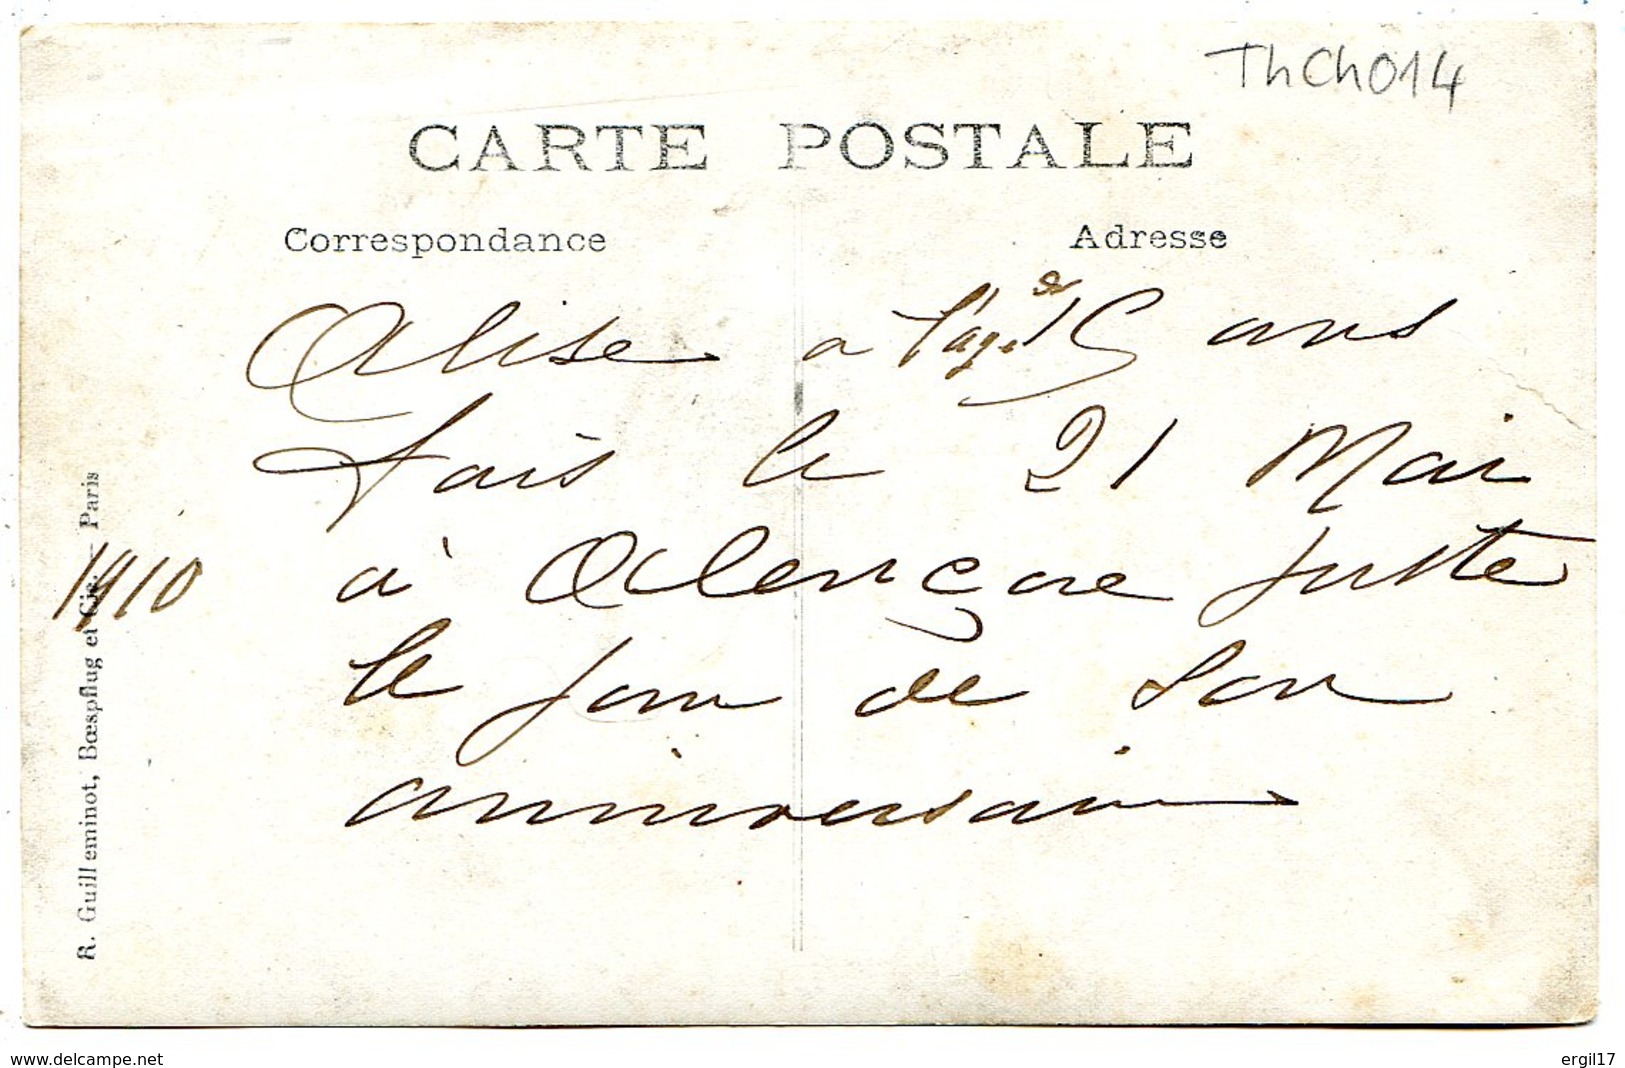 ThCh014
CARTE POSTALE
Correspondance
Adresse
Alise a l'age de 15 ans
fais le 21 Mai
1910
à Alençone juste
le jour de son
anniversaire
R. Guilleminot, Bœspflug et Cie. — Paris
www.delcampe.net
ergil17